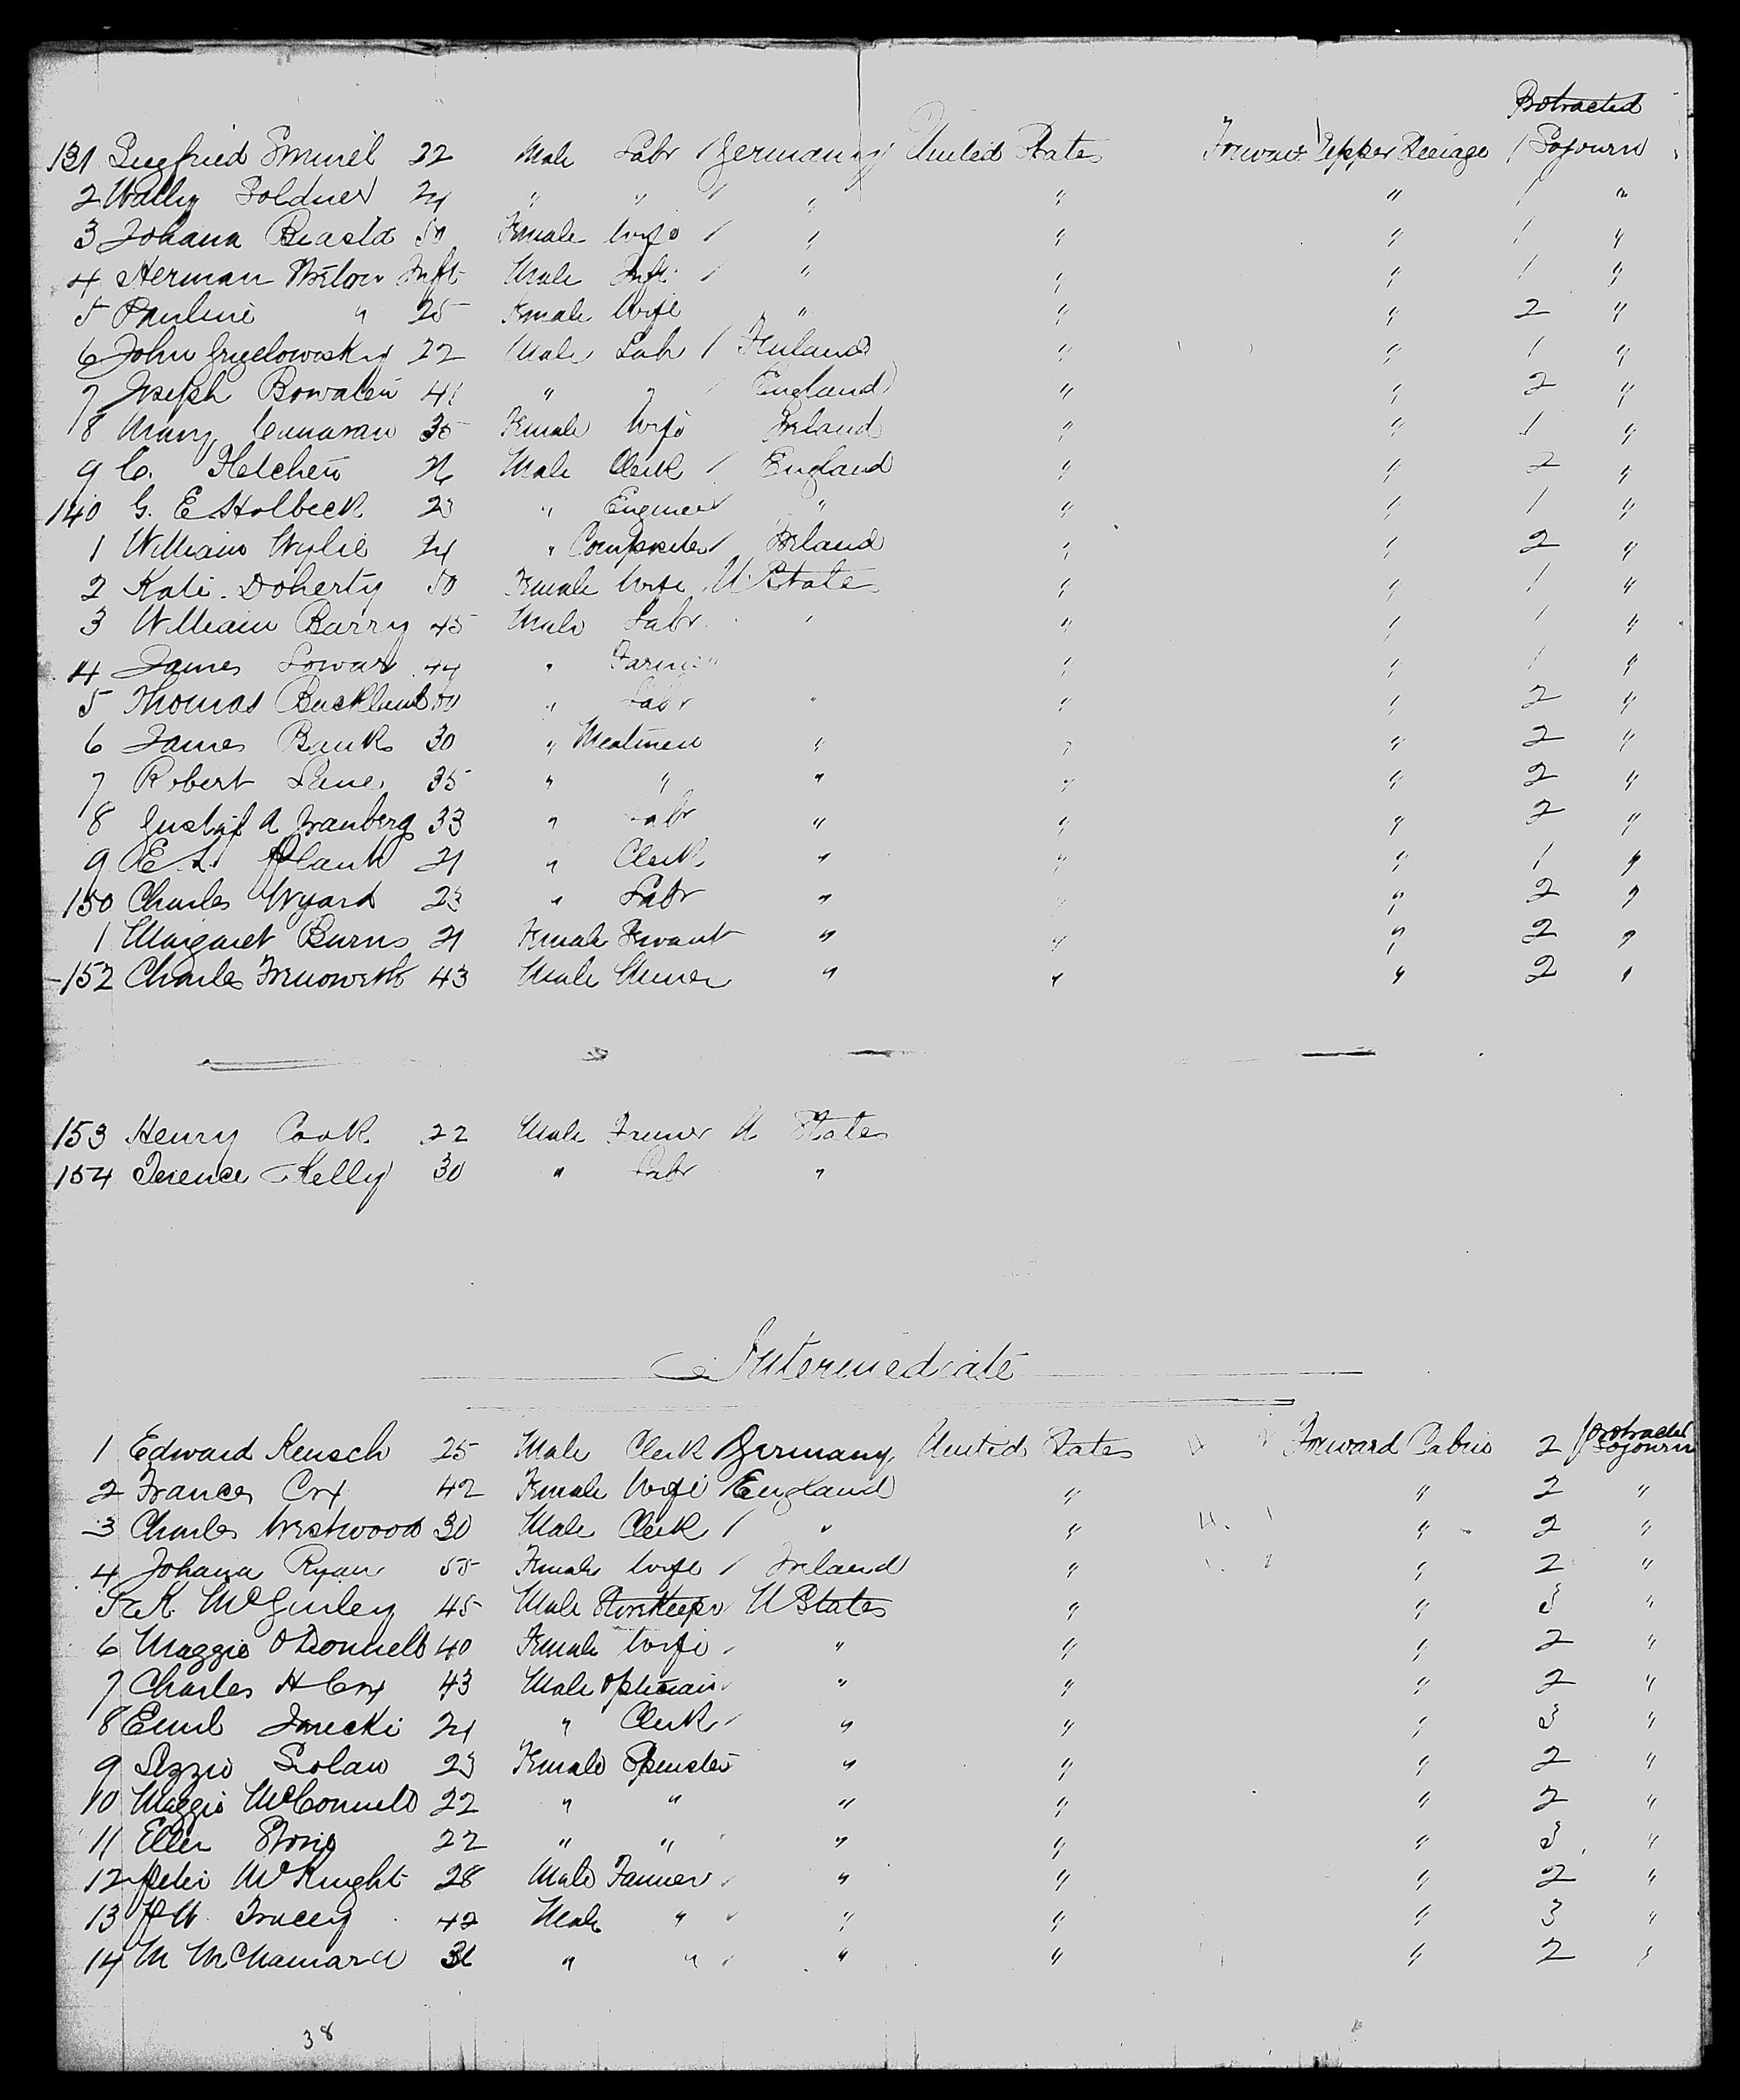 Protracted
131 Siegfried 22 Male Labr / Germany United States Forward Upper Steerage 1 Sojourn
2 Wally Soldner 24 " " / " " " 1 "
3 Johana 50 Female Wife / " " " 1 "
4 Herman Inft Male Inft / " " " 1 "
5 Pauline " 25 Female Wife " " " 2 "
6 John 22 Male Labr / Finland " " 1 "
7 Joseph 41 " " / England " " 2 "
8 Mary 35 Female Wife Ireland " " 1 "
9 C. Fletcher 26 Male Clerk / England " " 2 "
140 G. E Holbeck 23 " Engineer " " " 1 "
1 William Wylie 24 " Compositer / Ireland " " 2 "
2 Kate Doherty 50 Female Wife U State " " 1 "
3 William Barry 45 Male Labr " " " 1 "
4 James 44 " Farmer " " 1 "
5 Thomas Buckland 50 " Labr " " " 2 "
6 James Banks 30 " Meatmen " " " 2 "
7 Robert Lane 35 " " " " " 2 "
8 Gustaf A 33 " Labr " " " 2 "
9 E L. Plant 21 " Clerk " " " 1 "
150 Charles Wyard 23 " Labr " " 2 "
1 Margaret Burns 21 Female Servant " " " 2 "
152 Charles Trenowith 43 Male Miner " " " 2 "
153 Henry Cook 22 Male U States
154 Terence Kelly 30 " Labr "
Intermediate
1 Edward Reusch 25 Male Clerk / Germany United States Forward Cabin 2 Protracted Sojourn
2 Frances Cox 42 Female Wife / England " " 2 "
3 Charles Westwood 30 Male Clerk / " " " 2 "
4 Johana Ryan 55 Female Wife / Ireland " " 2 "
5 McGinley 45 Male Storekeepr U States " " 3 "
6 Maggie O'Donnell 40 Female Wife " " " 2 "
7 Charles H Cox 43 Male Optician " " " 2 "
8 Emil Jarecki 24 " Clerk " " " 3 "
9 Lizzie 23 Female Spinster " " " 2 "
10 Maggie McConnell 22 " " " " " 2 "
11 Ellen 22 " " " " " 3 "
12 Peter McKnight 28 Male Farmer " " " 2 "
13 Tracey 42 Male " " " " 3 "
14 M McNamara " " " " " 2 "
38